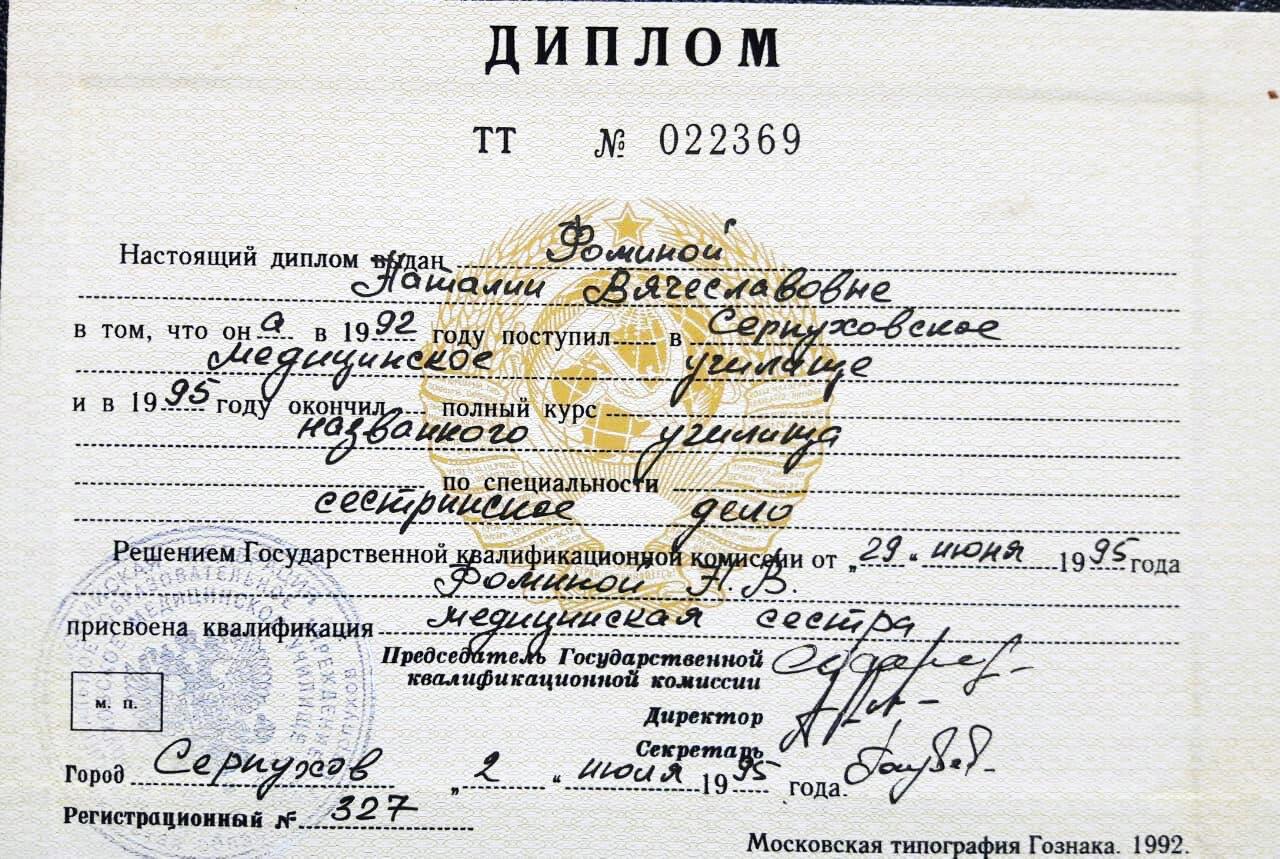 ДИПЛОМ
ТТ № 022369
Настоящий диплом выдан Фоминой
Наталии Вячеславовне
в том, что он а в 1992 году поступил в Серпуховское
медицинское училище
и в 1995 году окончил полный курс
названного училища
по специальности
сестринское дело
Решением Государственной квалификационной комиссии от „29“ июня 1995 года
Фоминой Н.В.
присвоена квалификация медицинская сестра
Председатель Государственной
квалификационной комиссии
Директор
Секретарь
м. п.
Город Серпухов „2“ июля 1995 года.
Регистрационный № 327
Московская типография Гознака. 1992.